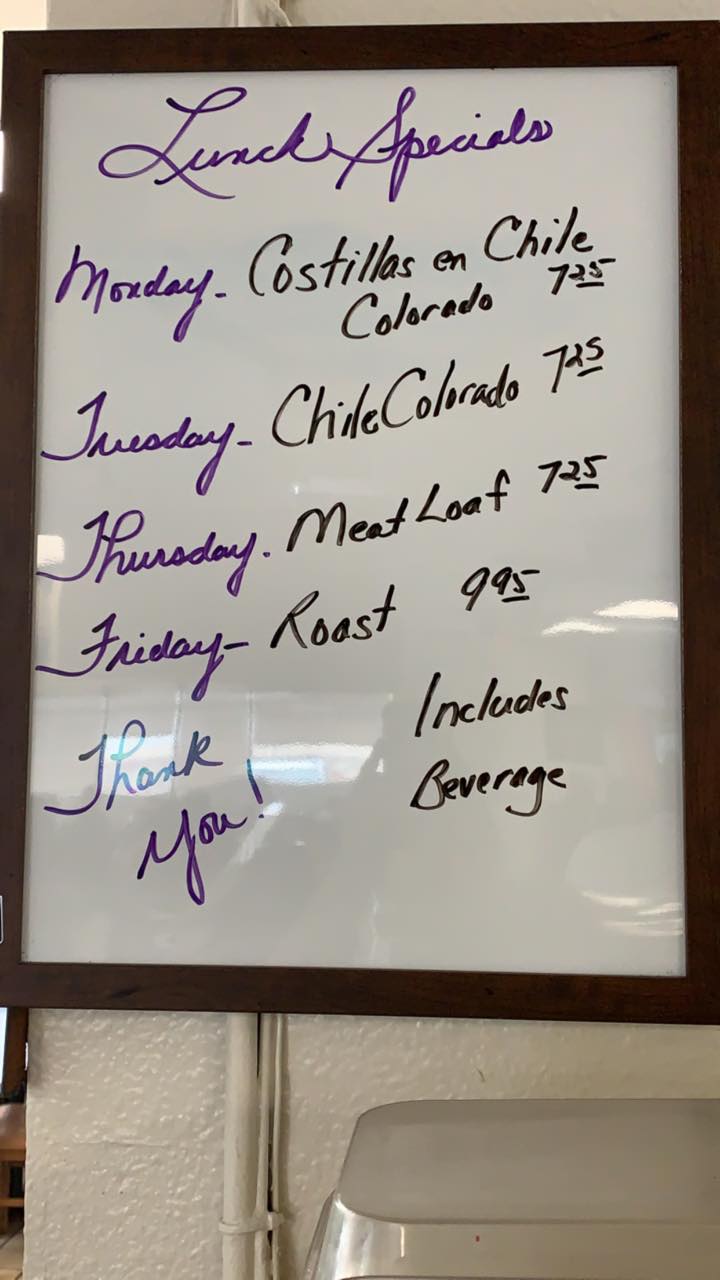 Lunch Specials
Monday- Costillas en Chile
Colorado 7 25
Tuesday- Chile Colorado 7 25
Thursday. Meat Loaf 7 25
Friday- Roast 9 95
Includes
Beverage
Thank
You!